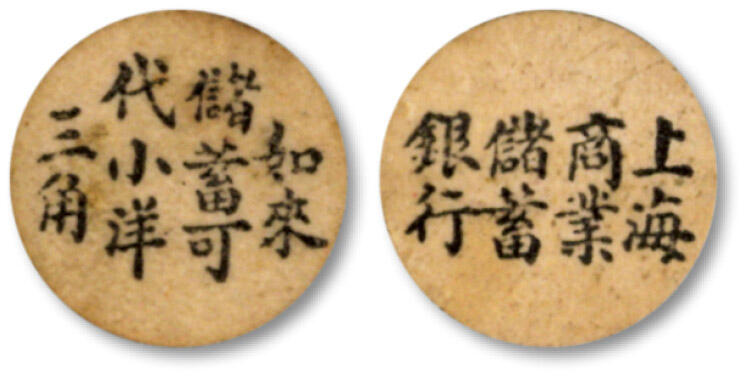 如來
儲蓄可
代小洋
三角
上海
商業
儲蓄
銀行